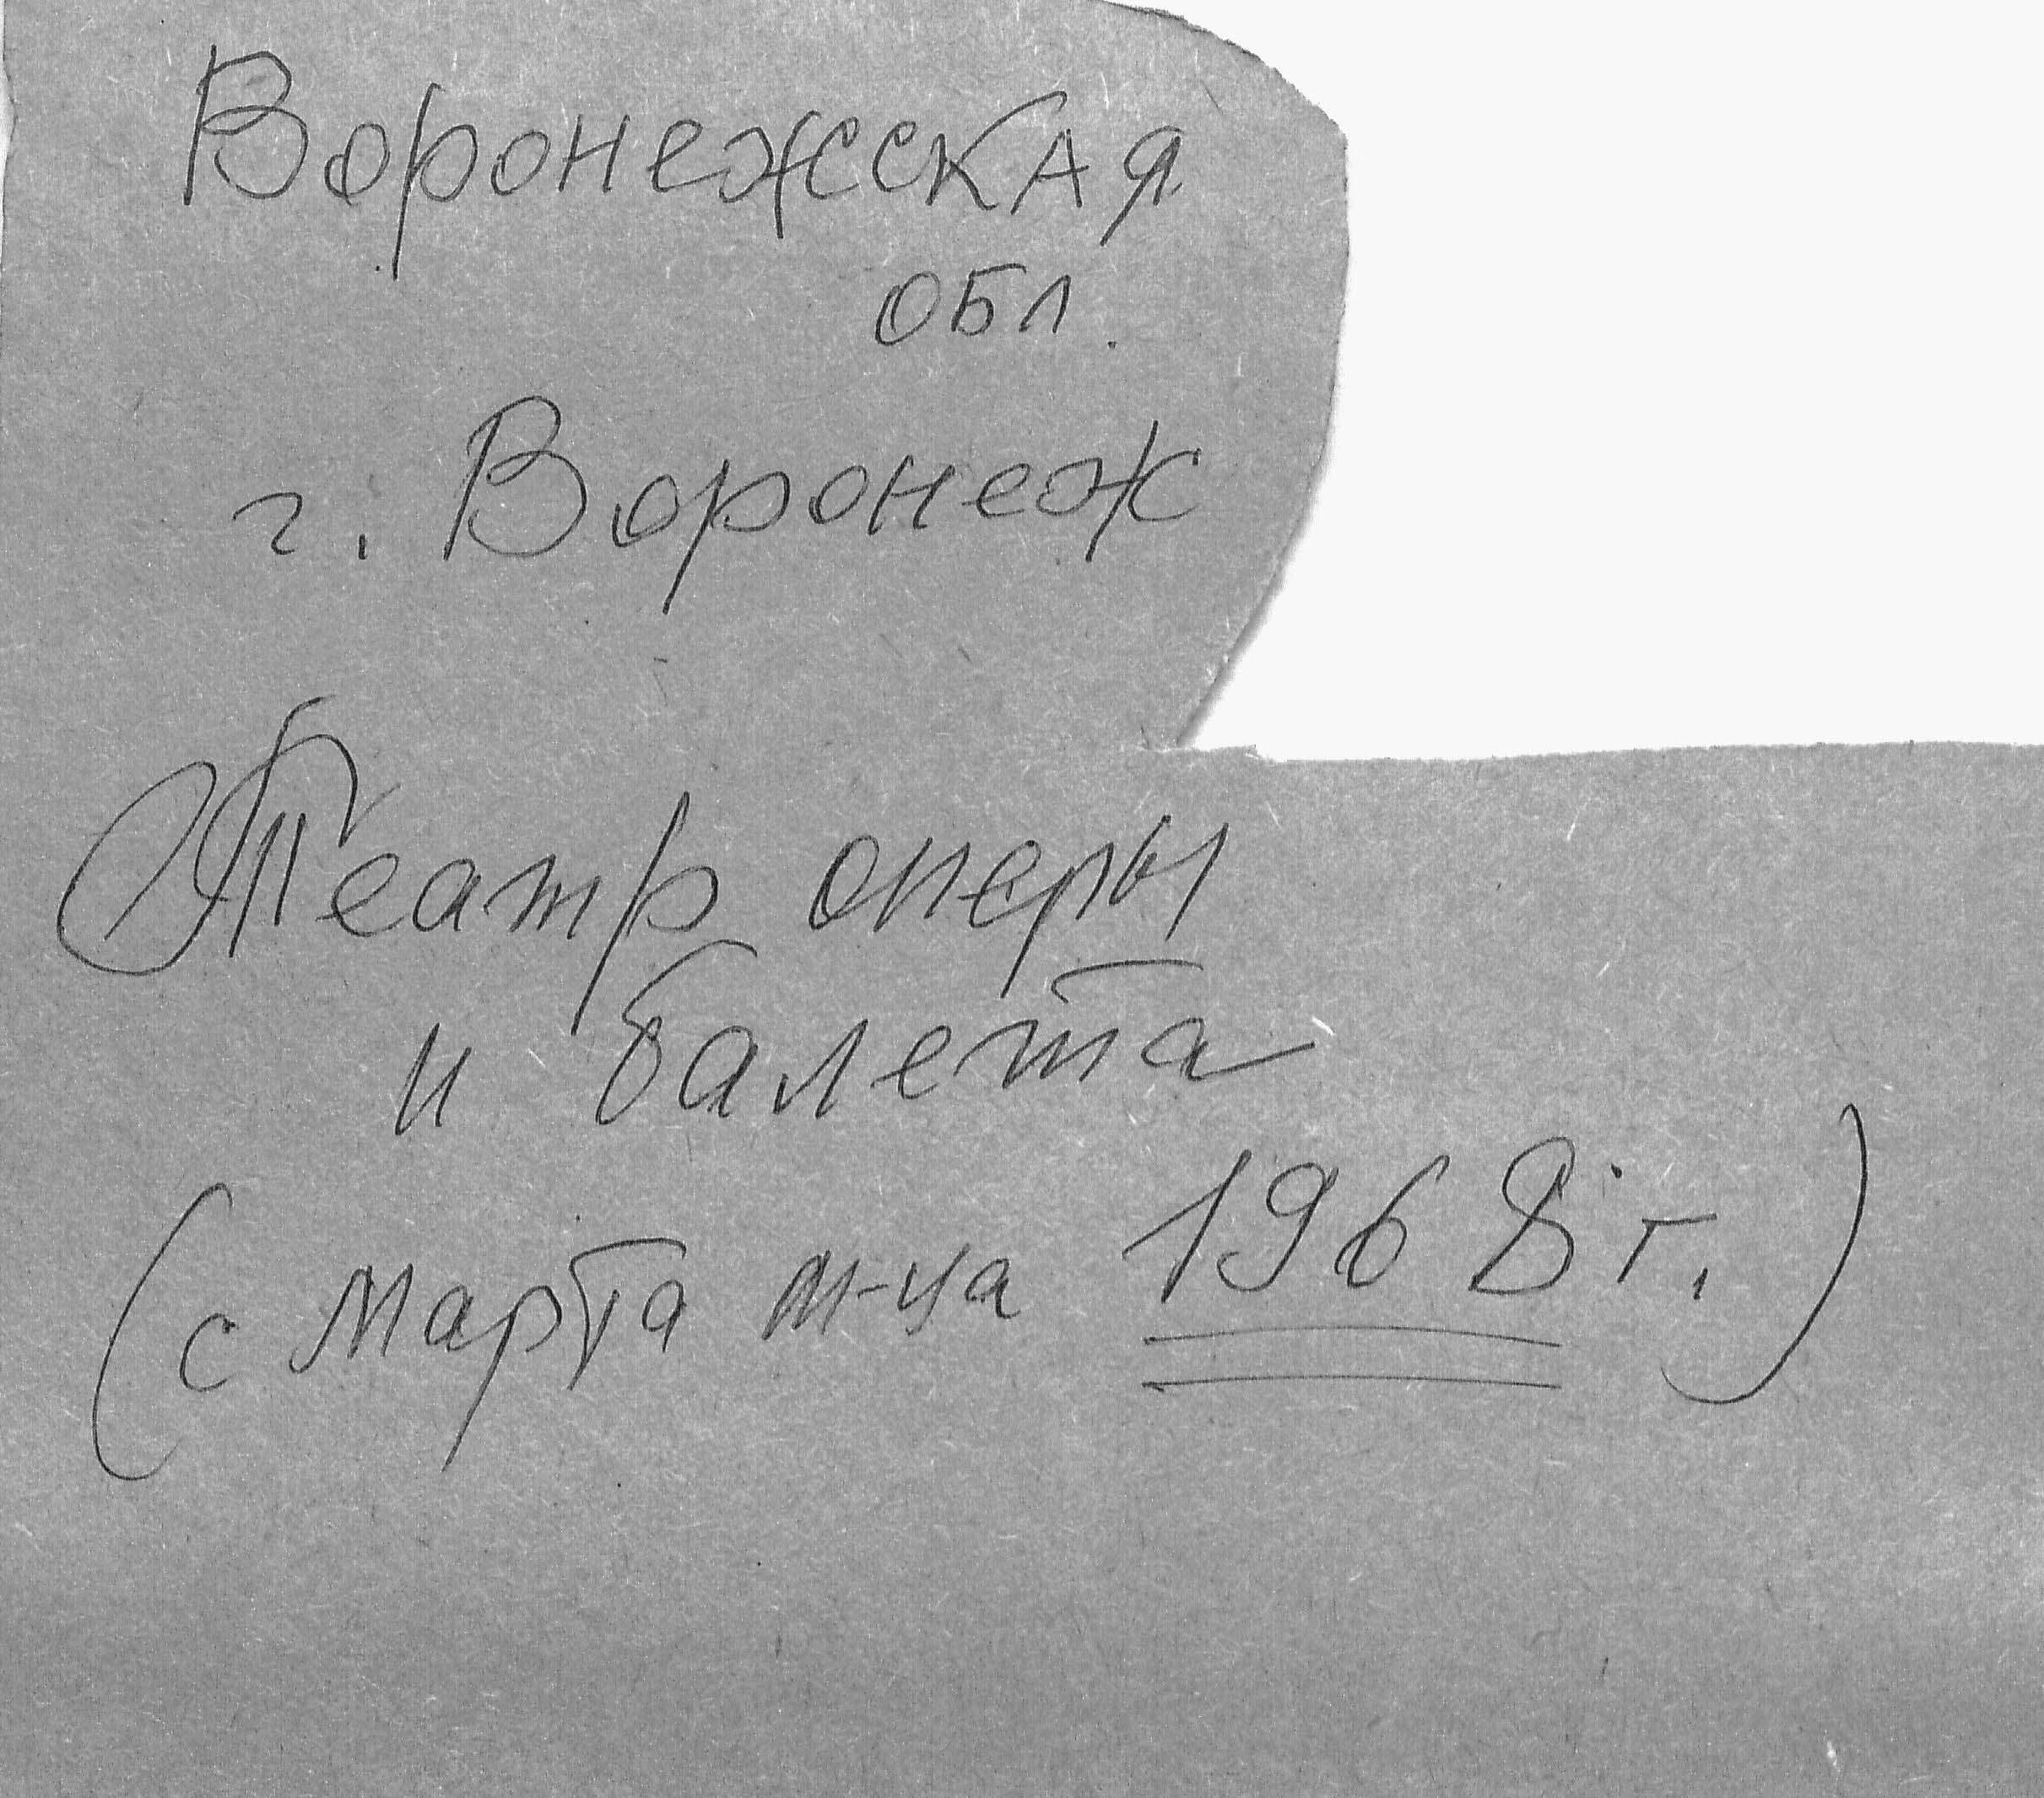 Воронежская
обл.
г. Воронеж
Театр оперы
и балета
(с марта м-ца 1968 г.)